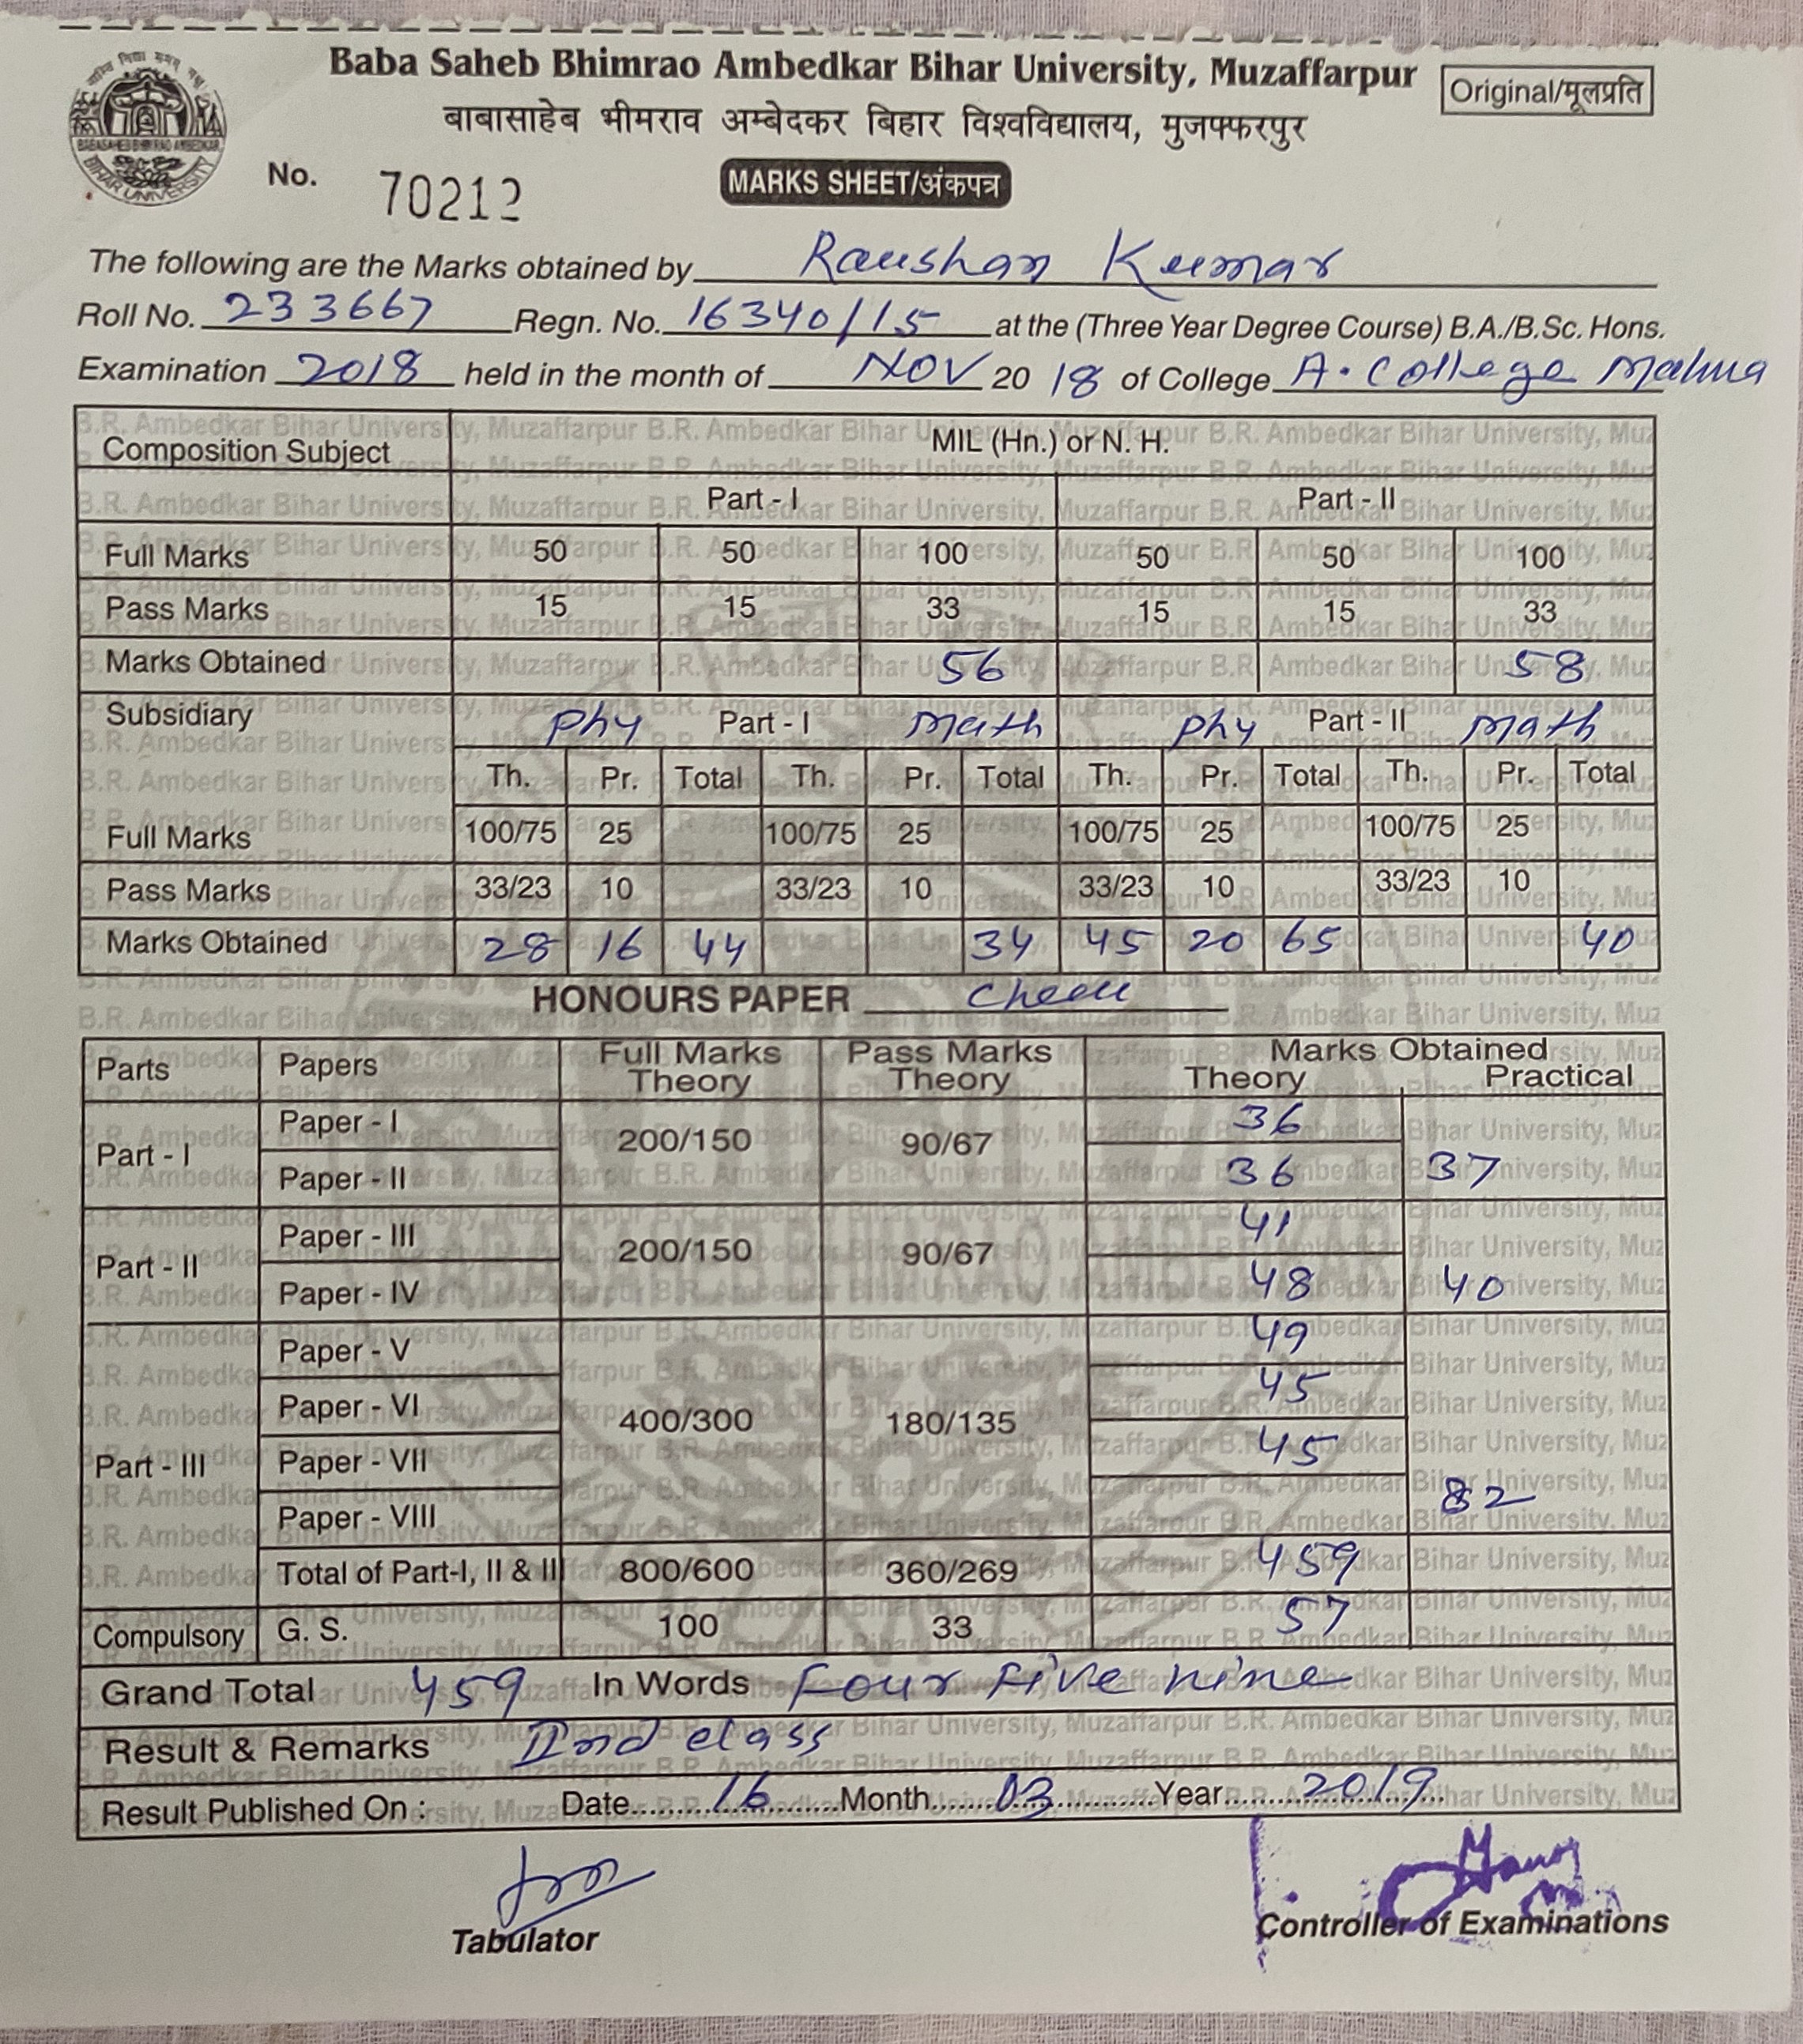 Baba Saheb Bhimrao Ambedkar Bihar University, Muzaffarpur
Original/मूलप्रति
बाबासाहेब भीमराव अम्बेदकर बिहार विश्वविद्यालय, मुजफ्फरपुर
No. 70212
MARKS SHEET/अंकपत्र
The following are the Marks obtained by Raushan Kumar
Roll No. 233667 Regn. No. 16340/15 at the (Three Year Degree Course) B.A./B.Sc. Hons.
Examination 2018 held in the month of NOV 2018 of College A. College Mahua
Composition Subject MIL (Hn.) or N. H.
Part - I Part - II
Full Marks 50 50 100 50 50 100
Pass Marks 15 15 33 15 15 33
Marks Obtained 56 58
Subsidiary Phy Part - I Math Phy Part - II Math
Th. Pr. Total Th. Pr. Total Th. Pr. Total Th. Pr. Total
Full Marks 100/75 25 100/75 25 100/75 25 100/75 25
Pass Marks 33/23 10 33/23 10 33/23 10 33/23 10
Marks Obtained 28 16 44 34 45 20 65 40
HONOURS PAPER Chem
Parts Papers Full Marks Theory Pass Marks Theory Marks Obtained Theory Practical
Part - I Paper - I 200/150 90/67 36
Paper - II 36 37
Part - II Paper - III 200/150 90/67 41
Paper - IV 48 40
Part - III Paper - V 400/300 180/135 49
Paper - VI 45
Paper - VII 45
Paper - VIII 82
Total of Part-I, II & II 800/600 360/269 459
Compulsory G. S. 100 33 57
Grand Total 459 In Words Four Five nine
Result & Remarks IInd class
Result Published On : Date 16 Month 03 Year 2019
Tabulator
Controller of Examinations